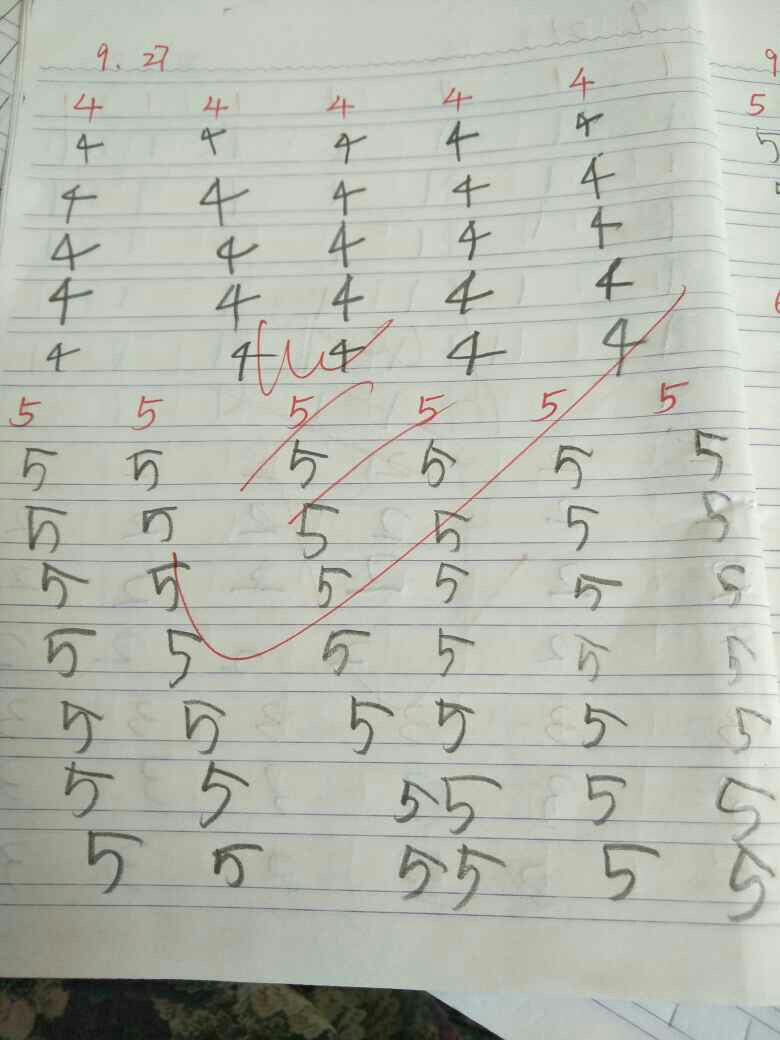 9. 27
4 4 4 4 4
4 4 4 4 4
4 4 4 4 4
4 4 4 4 4
4 4 4 4 4
4 4 4 4 4
5 5 5 5 5 5
5 5 5 5 5 5
5 5 5 5 5 5
5 5 5 5 5 5
5 5 5 5 5 5
5 5 5 5 5 5
5 5 5 5 5 5
5 5 5 5 5 5
9
5
5